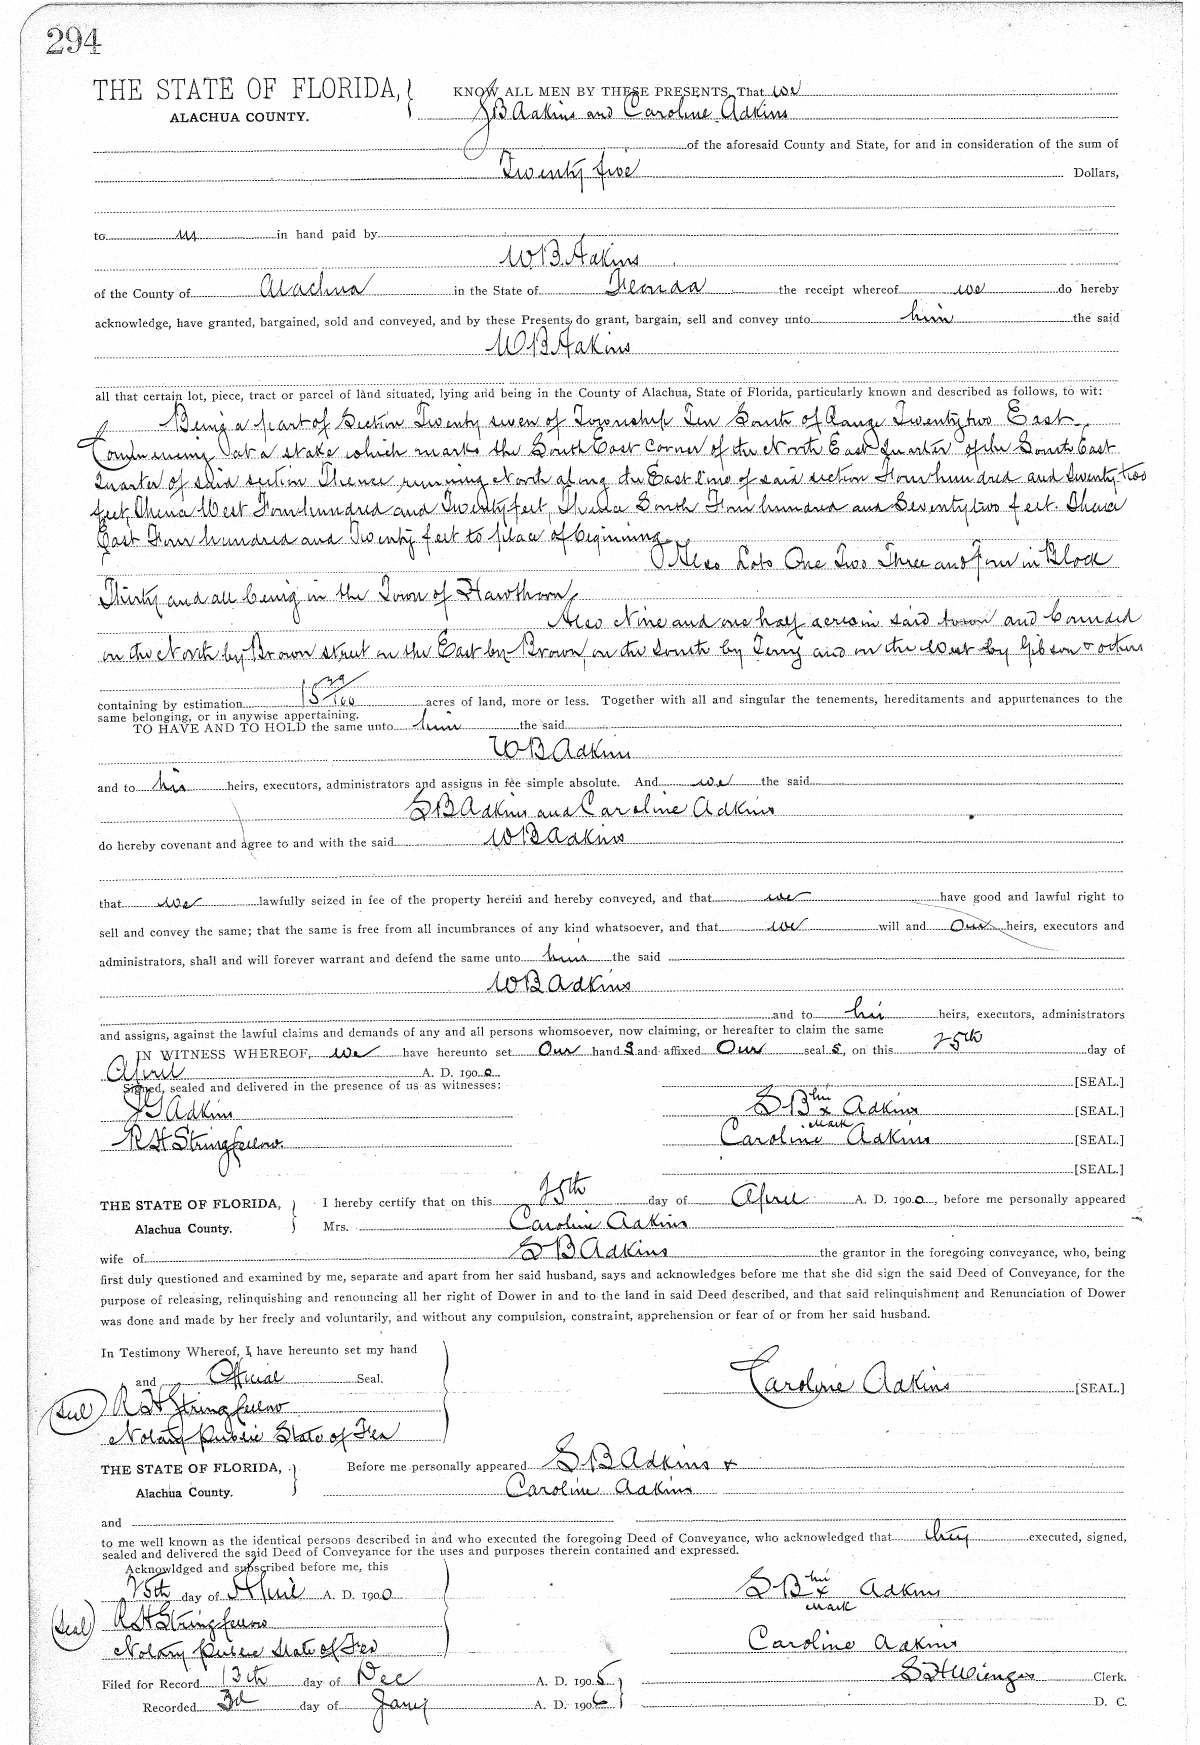 294
THE STATE OF FLORIDA, KNOW ALL MEN BY THESE PRESENTS, That we
ALACHUA COUNTY. B Adkins and Caroline Adkins
of the aforesaid County and State, for and in consideration of the sum of
Twenty five Dollars,
to us in hand paid by
W B Adkins
of the County of Alachua in the State of Florida the receipt whereof we do hereby
acknowledge, have granted, bargained, sold and conveyed, and by these Presents, do grant, bargain, sell and convey unto him the said
W B Adkins
all that certain lot, piece, tract or parcel of land situated, lying and being in the County of Alachua, State of Florida, particularly known and described as follows, to wit:
Being a part of Section Twenty seven of Township Ten South of Range Twenty two East
Commencing at a stake which marks the South East corner of the North East Quarter of the South East
Quarter of said section Thence running North along the East line of said section Four hundred and twenty two
feet, Thence West Four hundred and Twenty feet, Thence South Four hundred and Seventy two feet. Thence
East Four hundred and Twenty feet to place of begining.
Also Lots One Two Three and four in Block
Thirty and all being in the Town of Hawthorn,
Also Nine and one half acres in said town and bounded
on the North by Brown street on the East by Brown, on the South by Terry and on the West by Gibson & others
containing by estimation 15 /100 acres of land, more or less. Together with all and singular the tenements, hereditaments and appurtenances to the
same belonging, or in anywise appertaining.
TO HAVE AND TO HOLD the same unto him the said
W B Adkins
and to his heirs, executors, administrators and assigns in fee simple absolute. And we the said
S B Adkins and Caroline Adkins
do hereby covenant and agree to and with the said W B Adkins
that we lawfully seized in fee of the property herein and hereby conveyed, and that we have good and lawful right to
sell and convey the same; that the same is free from all incumbrances of any kind whatsoever, and that we will and Our heirs, executors and
administrators, shall and will forever warrant and defend the same unto him the said
W B Adkins
and to his heirs, executors, administrators
and assigns, against the lawful claims and demands of any and all persons whomsoever, now claiming, or hereafter to claim the same
IN WITNESS WHEREOF, we have hereunto set Our hand s and affixed Our seal s, on this 25th day of
April A. D. 190 0
Signed, sealed and delivered in the presence of us as witnesses: [SEAL.]
J G Adkins S B his x mark Adkins [SEAL.]
R H Stringfellow. Caroline Adkins [SEAL.]
[SEAL.]
THE STATE OF FLORIDA, I hereby certify that on this 25th day of April A. D. 190 0, before me personally appeared
Alachua County. Mrs. Caroline Adkins
wife of S B Adkins the grantor in the foregoing conveyance, who, being
first duly questioned and examined by me, separate and apart from her said husband, says and acknowledges before me that she did sign the said Deed of Conveyance, for the
purpose of releasing, relinquishing and renouncing all her right of Dower in and to the land in said Deed described, and that said relinquishment and Renunciation of Dower
was done and made by her freely and voluntarily, and without any compulsion, constraint, apprehension or fear of or from her said husband.
In Testimony Whereof, I have hereunto set my hand
and Official Seal. Caroline Adkins [SEAL.]
(Seal) R H Stringfellow
Notary Public State of Fla
THE STATE OF FLORIDA, Before me personally appeared S B Adkins &
Alachua County. Caroline Adkins
and
to me well known as the identical persons described in and who executed the foregoing Deed of Conveyance, who acknowledged that they executed, signed,
sealed and delivered the said Deed of Conveyance for the uses and purposes therein contained and expressed.
Acknowldged and subscribed before me, this
25th day of April A. D. 190 0 S B his x mark Adkins
(Seal) R H Stringfellow
Notary Public State of Fla Caroline Adkins
Filed for Record 13th day of Dec A. D. 190 5 S H Wienges Clerk.
Recorded 3d day of Jany A. D. 190 6 D. C.